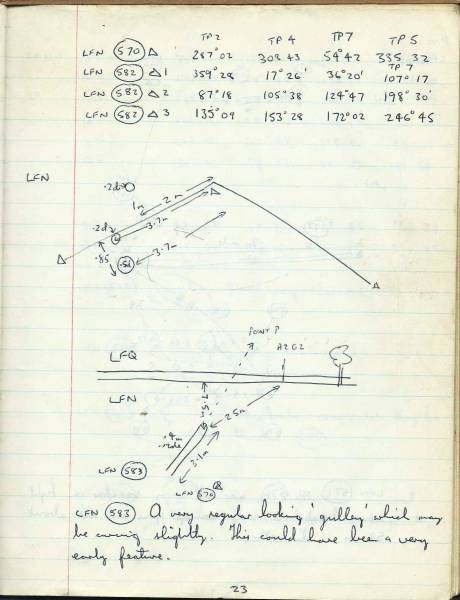 TP2 TP4 TP7 TP5
LFN 570 △ 287°02 308 43 59°42 335 32
TP7
LFN 582 △1 359°28 17°26' 36°20' 107° 17
LFN 582 △2 87°18 105°38 124°47 198° 30'
LFN 582 △3 135°09 153°28 172°02 246°45
LFN
.2d
1m 2m
.2d 3.7m
.85 3.7m
POINT P
LFQ A2G2
LFN
3.5m
2.5m
.4m
wide
LFN 583 3.1m
LFN 570 △
LFN 583 A very regular looking 'gulley' which may
be curving slightly. This could have been a very
early feature.
23